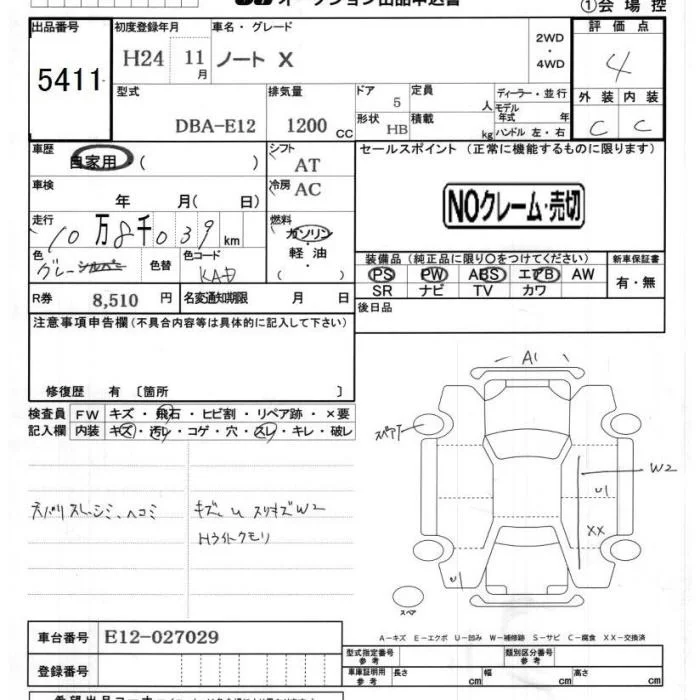 オークション出品申込書
①会場控
出品番号
5411
初度登録年月
H24
11月
車名・グレード
ノート X
2WD
・
4WD
評価点
4
型式
DBA-E12
排気量
1200 CC
ドア
5
定員
人
形状
HB
積載
kg
ディーラー・並行
モデル年式
年
ハンドル 左・右
外装
内装
C
C
車歴
自家用 ( )
シフト
AT
セールスポイント (正常に機能するものに限ります)
車検
年 月( 日)
冷房
AC
NOクレーム・売切
走行
10万8千039km
燃料
ガソリン
・
軽油
( )
色
グレー
色替
色コード
KAD
装備品 (純正品に限り○をつけてください)
PS PW ABS エアB AW
SR ナビ TV カワ
新車保証書
有・無
R券
8,510 円
名変通知期限
月 日
後日品
注意事項申告欄 (不具合内容等は具体的に記入して下さい)
修復歴 有 〔箇所 〕
検査員
記入欄
FW
キズ・飛石・ヒビ割・リペア跡・×要
内装
キズ・汚レ・コゲ・穴・スレ・キレ・破レ
キズ、U スリキズW2
Hライトクモリ
A1
スペアT
W2
U1
XX
U1
スペア
A-キズ E-エクボ U-凹み W-補修跡 S-サビ C-腐食 XX-交換済
車台番号
E12-027029
登録番号
型式指定番号
参考
類別区分番号
参考
車庫証明用
参考
長さ cm
幅 cm
高さ cm